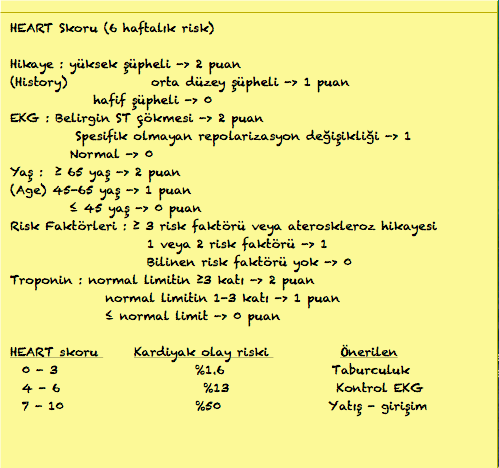 HEART Skoru (6 haftalık risk)
Hikaye : yüksek şüpheli -> 2 puan
(History) orta düzey şüpheli -> 1 puan
hafif şüpheli -> 0
EKG : Belirgin ST çökmesi -> 2 puan
Spesifik olmayan repolarizasyon değişikliği -> 1
Normal -> 0
Yaş : ≥ 65 yaş -> 2 puan
(Age) 45-65 yaş -> 1 puan
≤ 45 yaş -> 0 puan
Risk Faktörleri : ≥ 3 risk faktörü veya ateroskleroz hikayesi
1 veya 2 risk faktörü -> 1
Bilinen risk faktörü yok -> 0
Troponin : normal limitin ≥3 katı -> 2 puan
normal limitin 1-3 katı -> 1 puan
≤ normal limit -> 0 puan
HEART skoru Kardiyak olay riski Önerilen
0 - 3 %1.6 Taburculuk
4 - 6 %13 Kontrol EKG
7 - 10 %50 Yatış - girişim